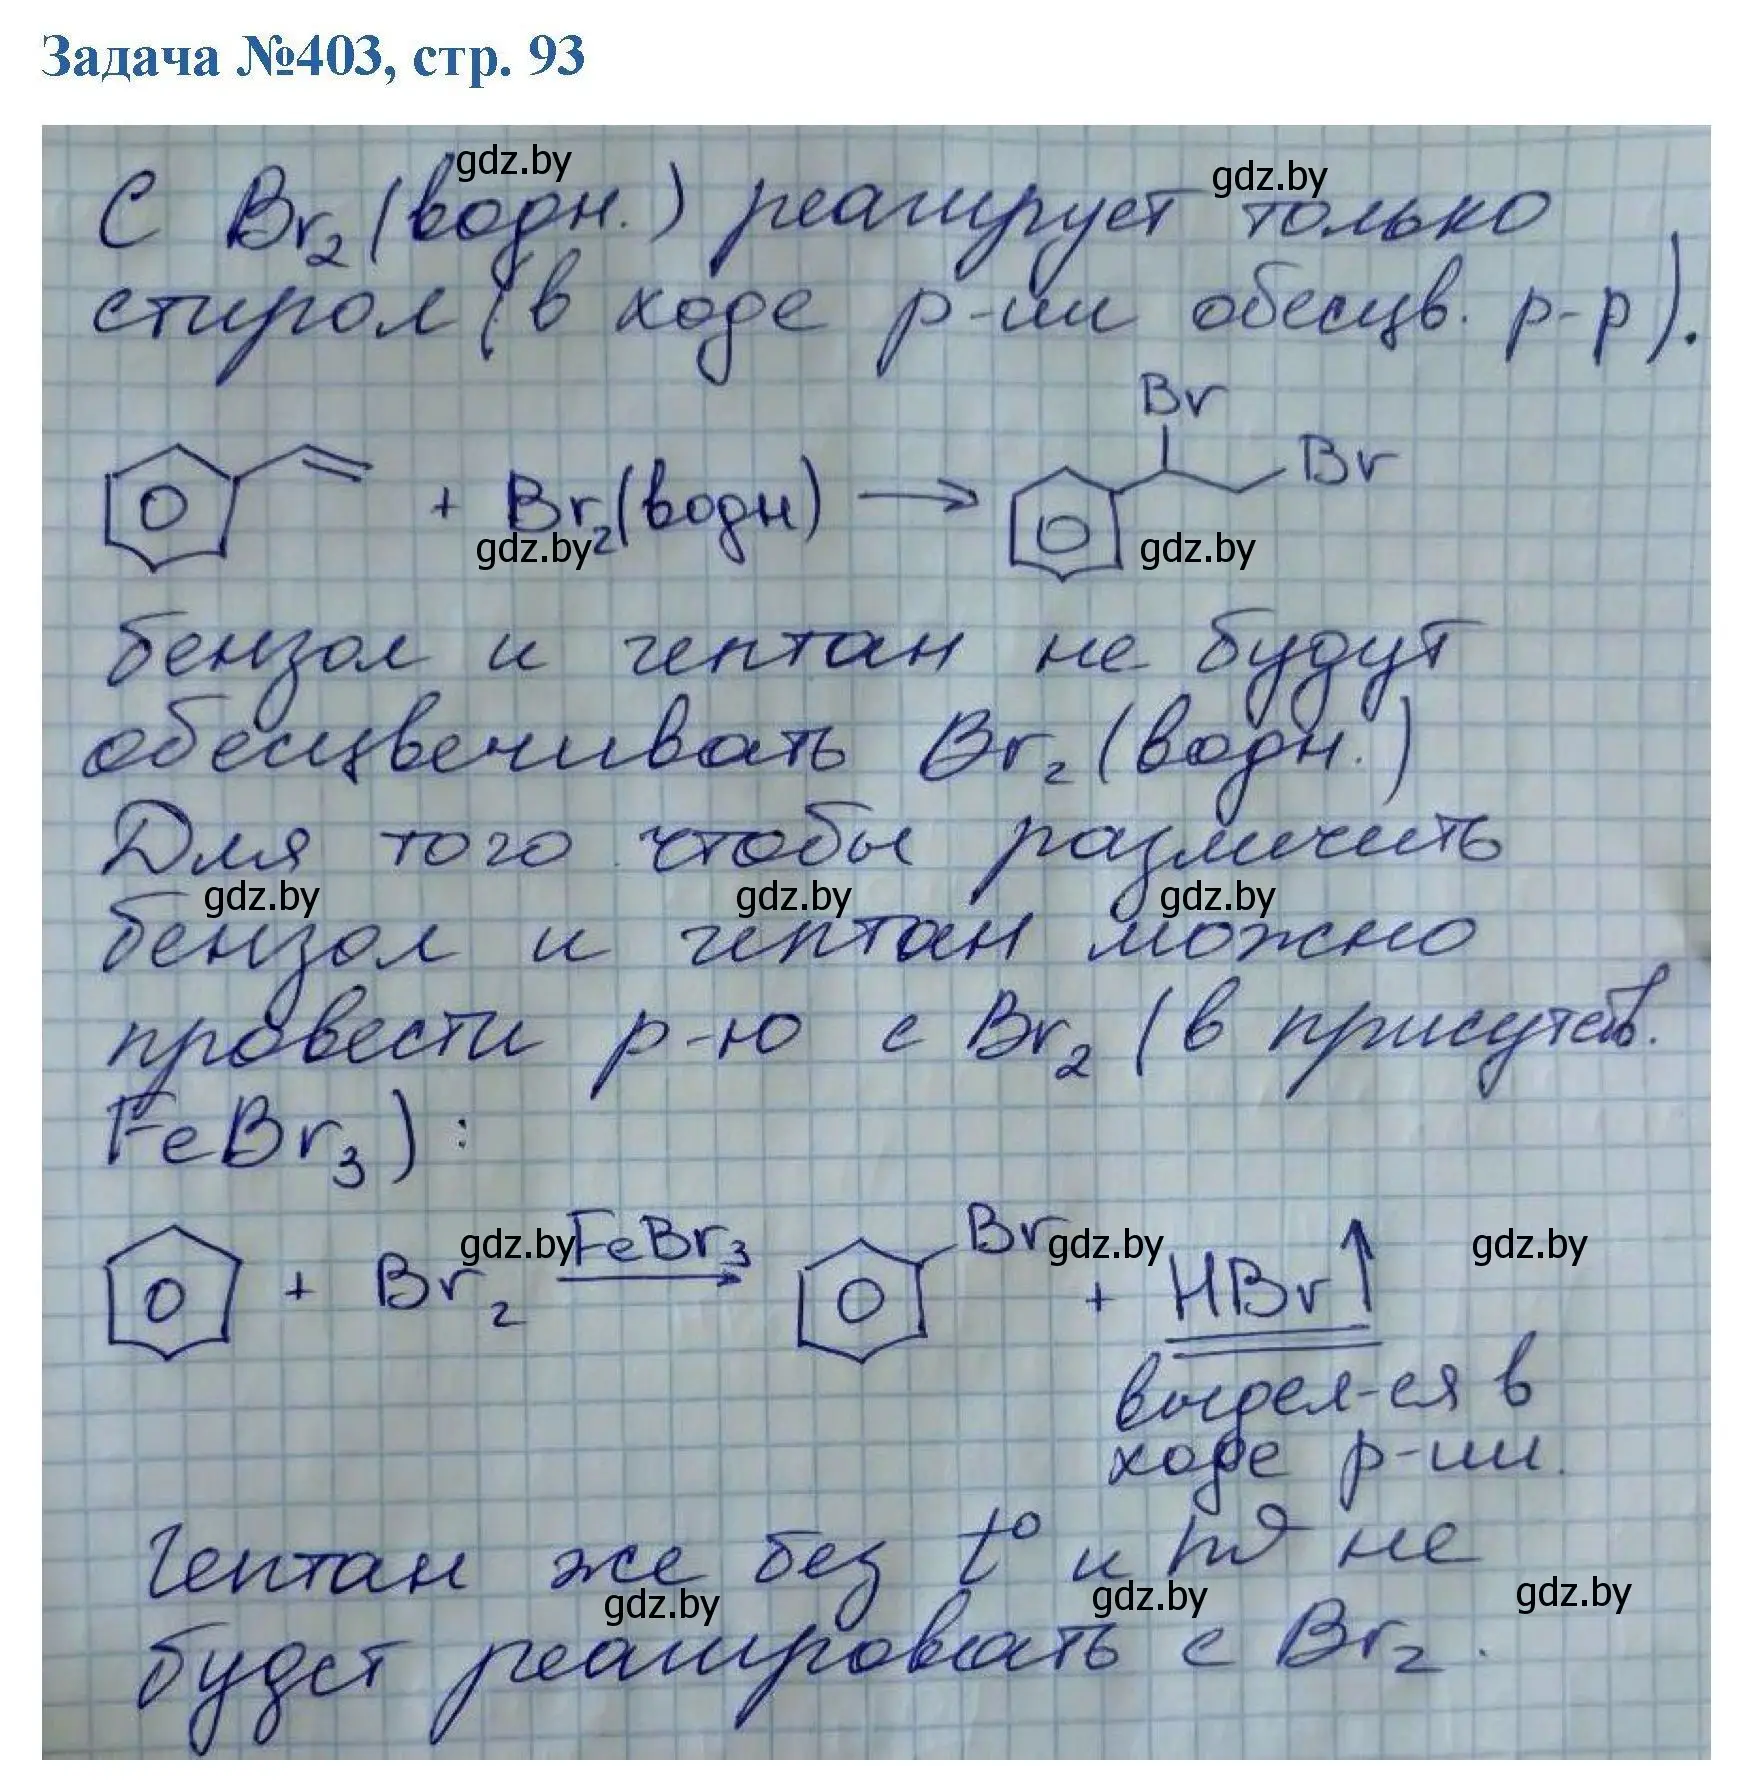 Задача №403, стр. 93
gdz.by gdz.by
С Br₂ (водн.) реагирует только
стирол (в ходе р-ии обесцв. р-р).
Br
+ Br₂(водн) → Br
gdz.by gdz.by
бензол и гептан не будут
обесцвечивать Br₂ (водн.)
Для того чтобы различить
gdz.by gdz.by gdz.by
бензол и гептан можно
провести р-ю с Br₂ (в присутств.
FeBr₃):
gdz.by gdz.by gdz.by
+ Br₂ FeBr₃ → Br + HBr↑
выдел-ся в
ходе р-ии.
Гептан же без t° и hν не
gdz.by gdz.by gdz.by
будет реагировать с Br₂.